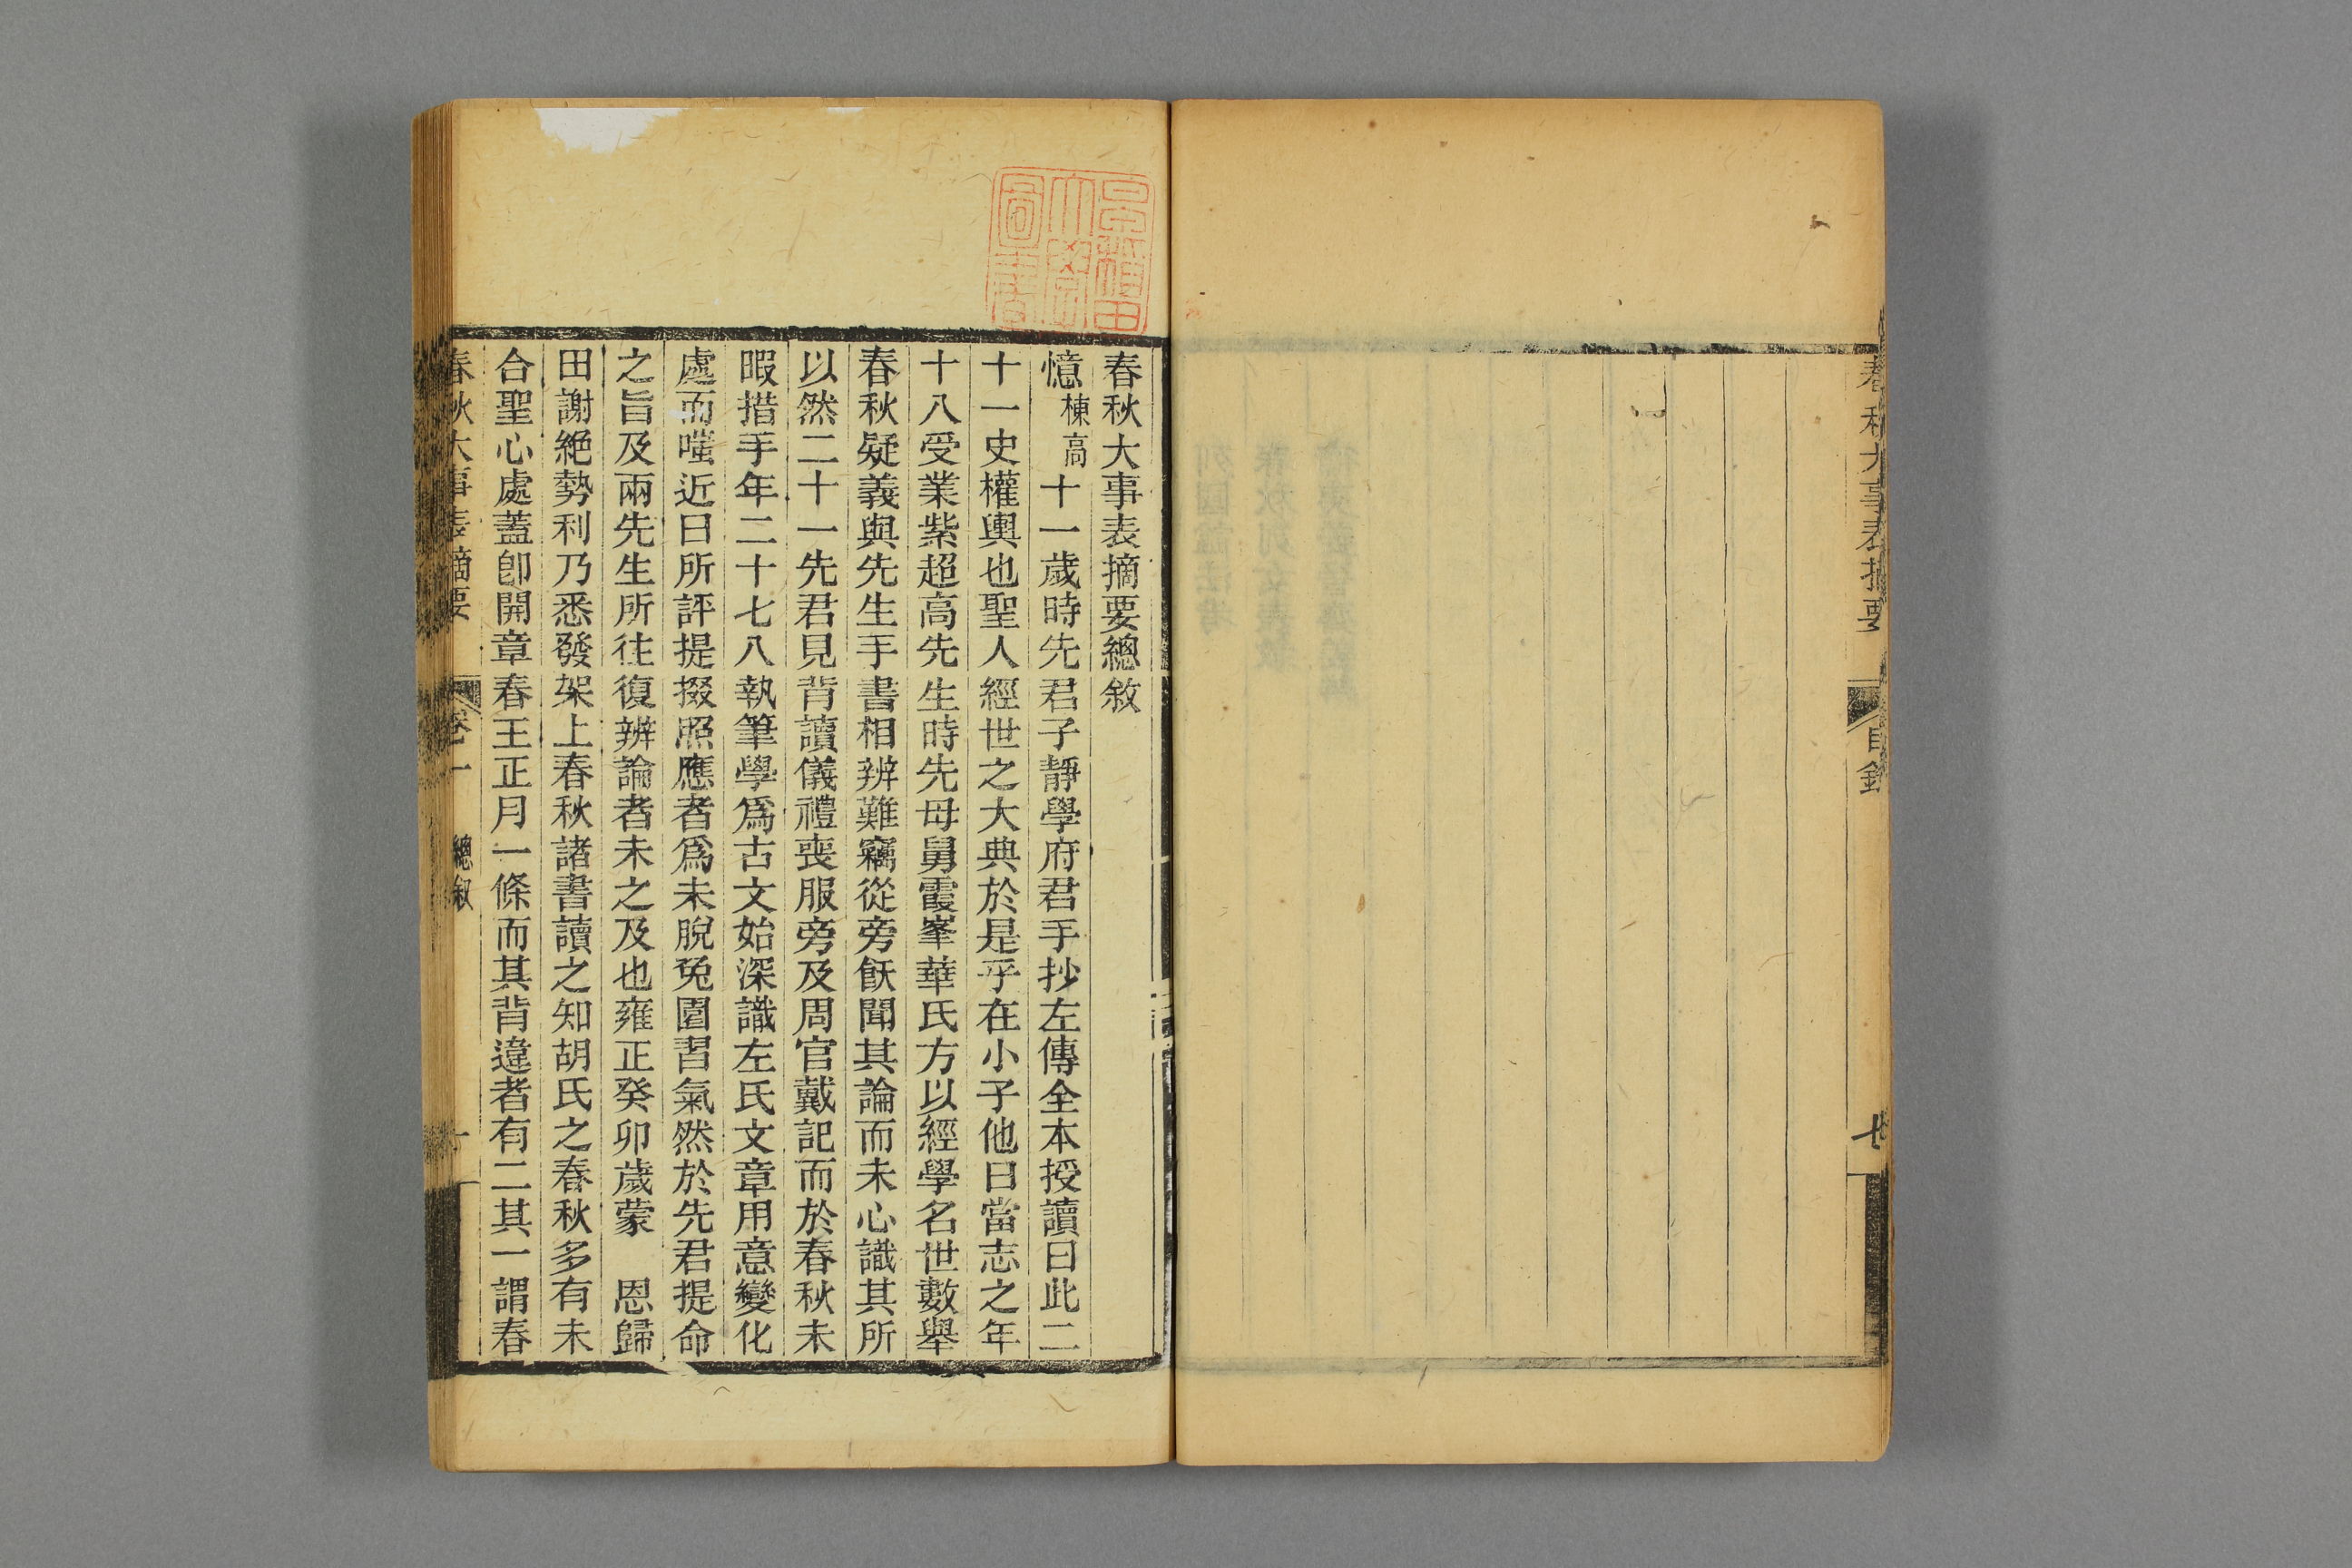 春秋大事表摘要
目錄
七
早稻田大學圖書
春秋大事表摘要總敘
憶棟高十一歲時先君子靜學府君手抄左傳全本授讀曰此二
十一史權輿也聖人經世之大典於是乎在小子他日當志之年
十八受業紫超高先生時先母舅霞峯華氏方以經學名世數舉
春秋疑義與先生手書相辨難竊從旁飫聞其論而未心識其所
以然二十一先君見背讀儀禮喪服旁及周官戴記而於春秋未
暇措手年二十七八執筆學爲古文始深識左氏文章用意變化
處而嗤近日所評提掇照應者爲未脫兔園習氣然於先君提命
之旨及兩先生所往復辨論者未之及也雍正癸卯歲蒙　恩歸
田謝絕勢利乃悉發架上春秋諸書讀之知胡氏之春秋多有未
合聖心處蓋卽開章春王正月一條而其背違者有二其一謂春
春秋大事表摘要
卷一
總敘
一